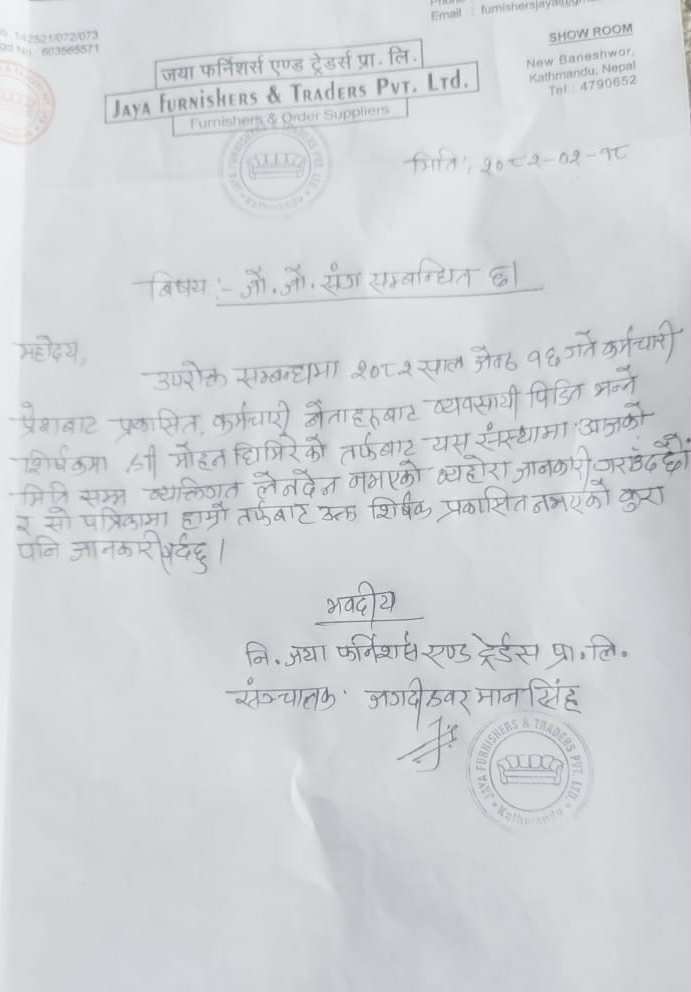 Email : furnishersjaya
142521/072/073
603565571
SHOW ROOM
New Baneshwor,
Kathmandu, Nepal
Tel : 4790652
जया फर्निशर्स एण्ड ट्रेडर्स प्रा. लि.
JAYA FURNISHERS & TRADERS PVT. LTD.
Furnishers & Order Suppliers
मिति: २०८२-०२-१८
बिषय :- जो. जो. संग सम्बन्धित छ।
महोदय,
उपरोक्त सम्बन्धमा २०८२ साल जेठ १६ गते कर्मचारी
प्रेसबाट प्रकासित, कर्मचारी नेताहरुबाट व्यवसायी पिडित भन्ने
शिर्षकमा श्री मोहन घिमिरेको तर्फबाट यस संस्थामा आजको
मिति सम्म व्यक्तिगत लेनदेन नभएको व्यहोरा जानकारी गराँउदछौ
र सो पत्रिकामा हाम्रो तर्फबाट उक्त शिर्षक प्रकासित नभएको कुरा
पनि जानकारी गर्दछु।
भवदीय
नि. जया फर्निशर्स एण्ड ट्रेर्डस प्रा. लि.
संञ्चालक जगदीश्वर मान सिंह
JAYA FURNISHERS & TRADERS PVT. LTD.
Kathmandu